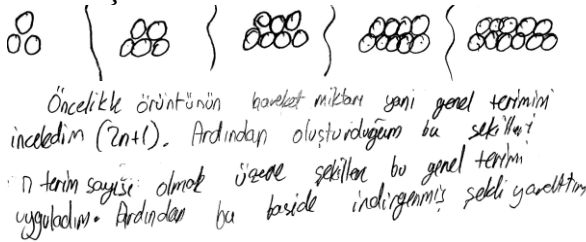 Öncelikle örüntünün hareket miktarı yani genel terimini
inceledim (2n+1). Ardından oluşturduğum bu şekilleri
n terim sayısı olmak üzere şekillere bu genel terimi
uyguladım. Ardından bu baside indirgenmiş şekli yarattım